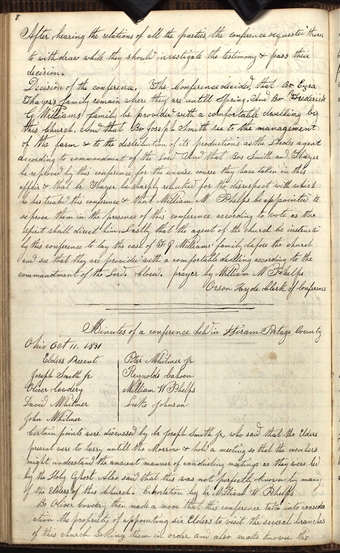 8
After hearing the relations of all the parties, the conference requested them
to withdraw while they should investigate the testimony & pass their
decision.
Decision of the conference, The Conference decided that Br. Ezra
Thayer's family remain where they are untill Spring. And Br. Frederick
G Williams' family be provided with a comfortable dwelling by
this Church. And that Br Joseph Smith see to the management
of the farm & to the distribution of its productions as the Lords agent
according to commandment of the Lord And that Brs Smith and Thayer
be reproved by this conference for the unwise course they have taken in this
affair & that Br Thayer be sharply rebuked for the disrespect with which
he has treated this conference & that William W. Phelps be appointed to
reprove them in the presence of this conference according to vote as the
spirit shall direct him Lastly that the agent of the church be instructed
by this conference to lay the case of F. G Williams' family before the church
and see that they are provided with a comfortable dwelling according to the
commandment of the Lord. Closed. prayer by William W. Phelps
Orson Hyde Clerk of Conference
Minutes of a conference held in Hiram Portage County
Ohio Oct 11. 1831
Elders Present Peter Whitmer jr
Joseph Smith jr Reynolds Cahoon
Oliver Cowdery William W. Phelps
David Whitmer Luke Johnson
John Whitmer
Certain points were discussed by br Joseph Smith jr who said that the Elders
present were to tarry untill the Morrow & hold a meeting so that the members
might understand the ancient manner of conducting meetings as they were led
by the Holy Ghost. Also said that this was not perfectly known by many
of the Elders of this Church. Exhortation by br William W. Phelps
Br Oliver Cowdery then made a move that this conference take into consider
ation the propriety of appointing six Elders to visit the several branches
of this church setting them in order and also make known the